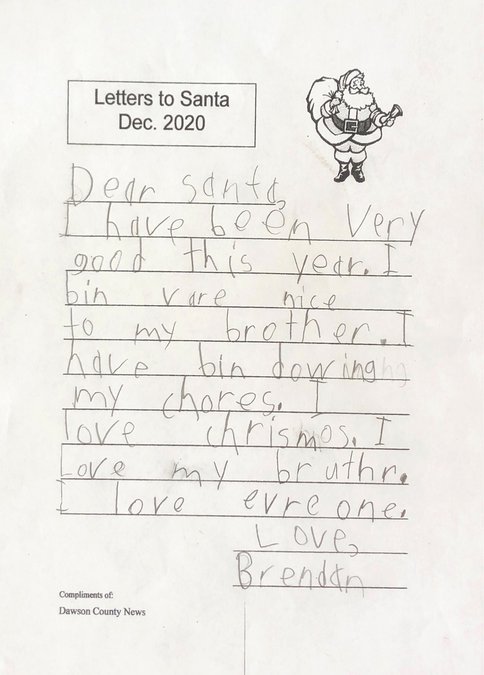 Letters to Santa
Dec. 2020
Dear santa,
I have been very
good this year. I
bin vare nice
to my brother. I
have bin dowing
my chores. I
love chrismos. I
Love my bruthr.
I love evre one.
Love,
Brendan
Compliments of:
Dawson County News